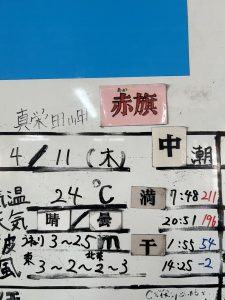 あか
赤旗
真栄田岬
中潮
4/11(木)
気温 24℃ 満 7:48 211
天気 晴/曇 20:51 196
波 うねり 3～2.5m 干 1:55 54
風 東3～2～北東2～3 14:25 -2